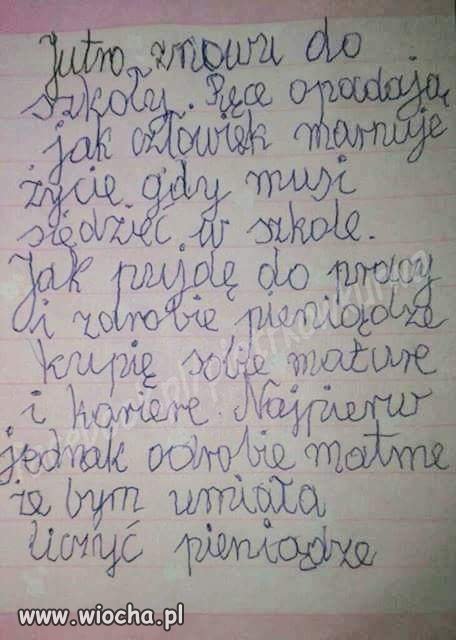 Jutro znowu do
szkoły. Ręce opadają
jak człowiek marnuje
życie gdy musi
siędzieć w szkole.
Jak pujdę do pracy
i zdrobie pieniądze
kupię sobie mature
i kariere. Najpierw
jednak odrobie matme
że bym umiała
liczyć pieniądze
www.wiocha.pl